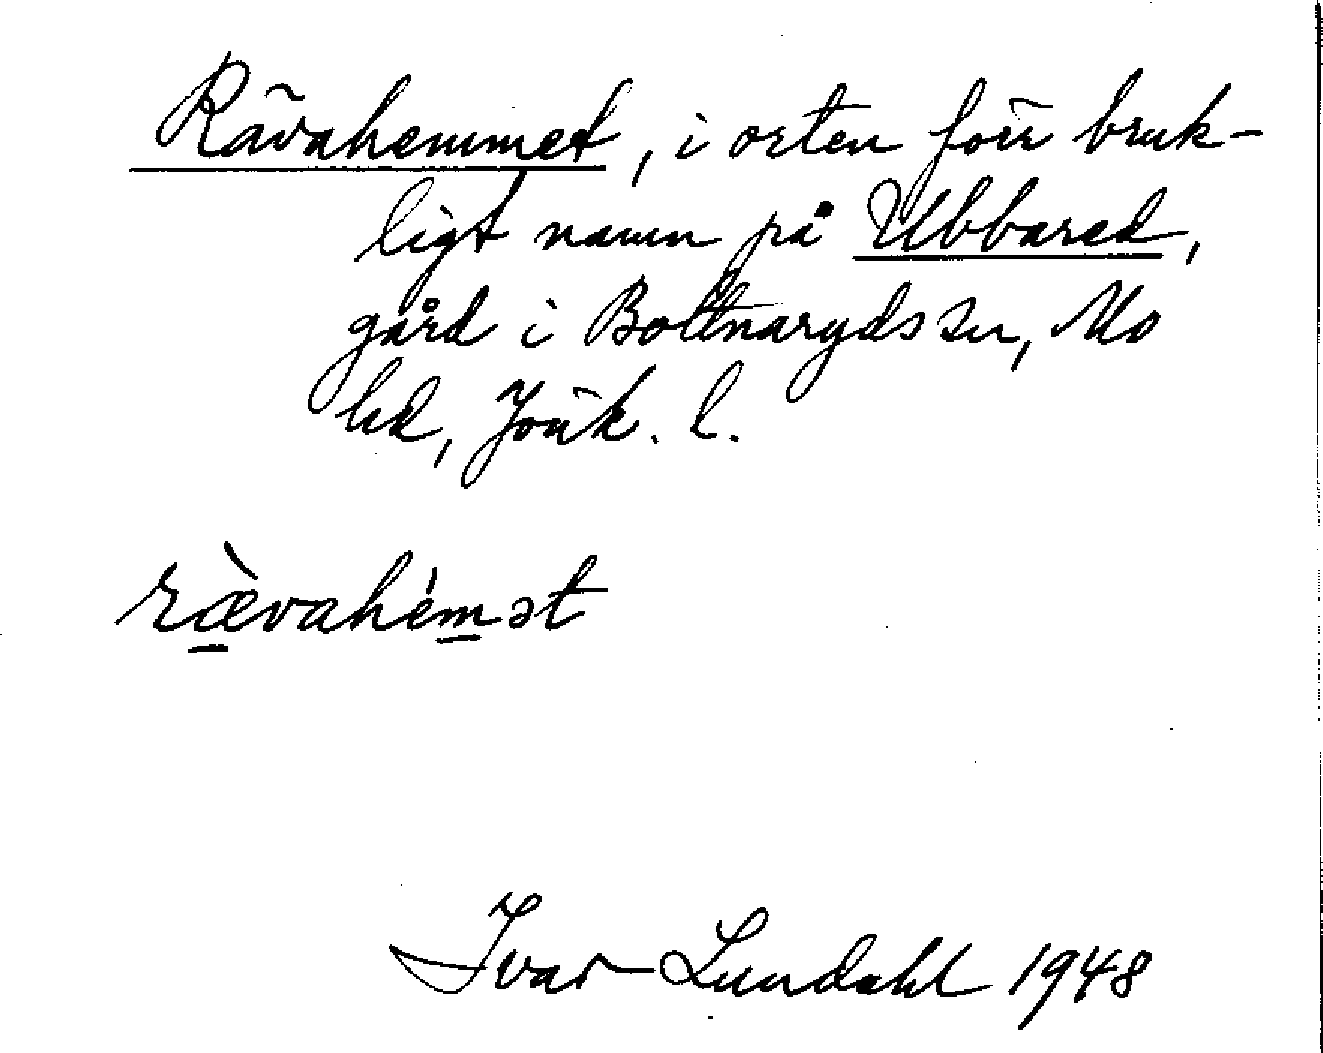 Rävahemmet, i orten förr bruk-
ligt namn på Ubbared,
gård i Bottnaryds sn, Mo
hd, Jönk. l.
ræ̀vahémət
Ivar Lundahl 1948